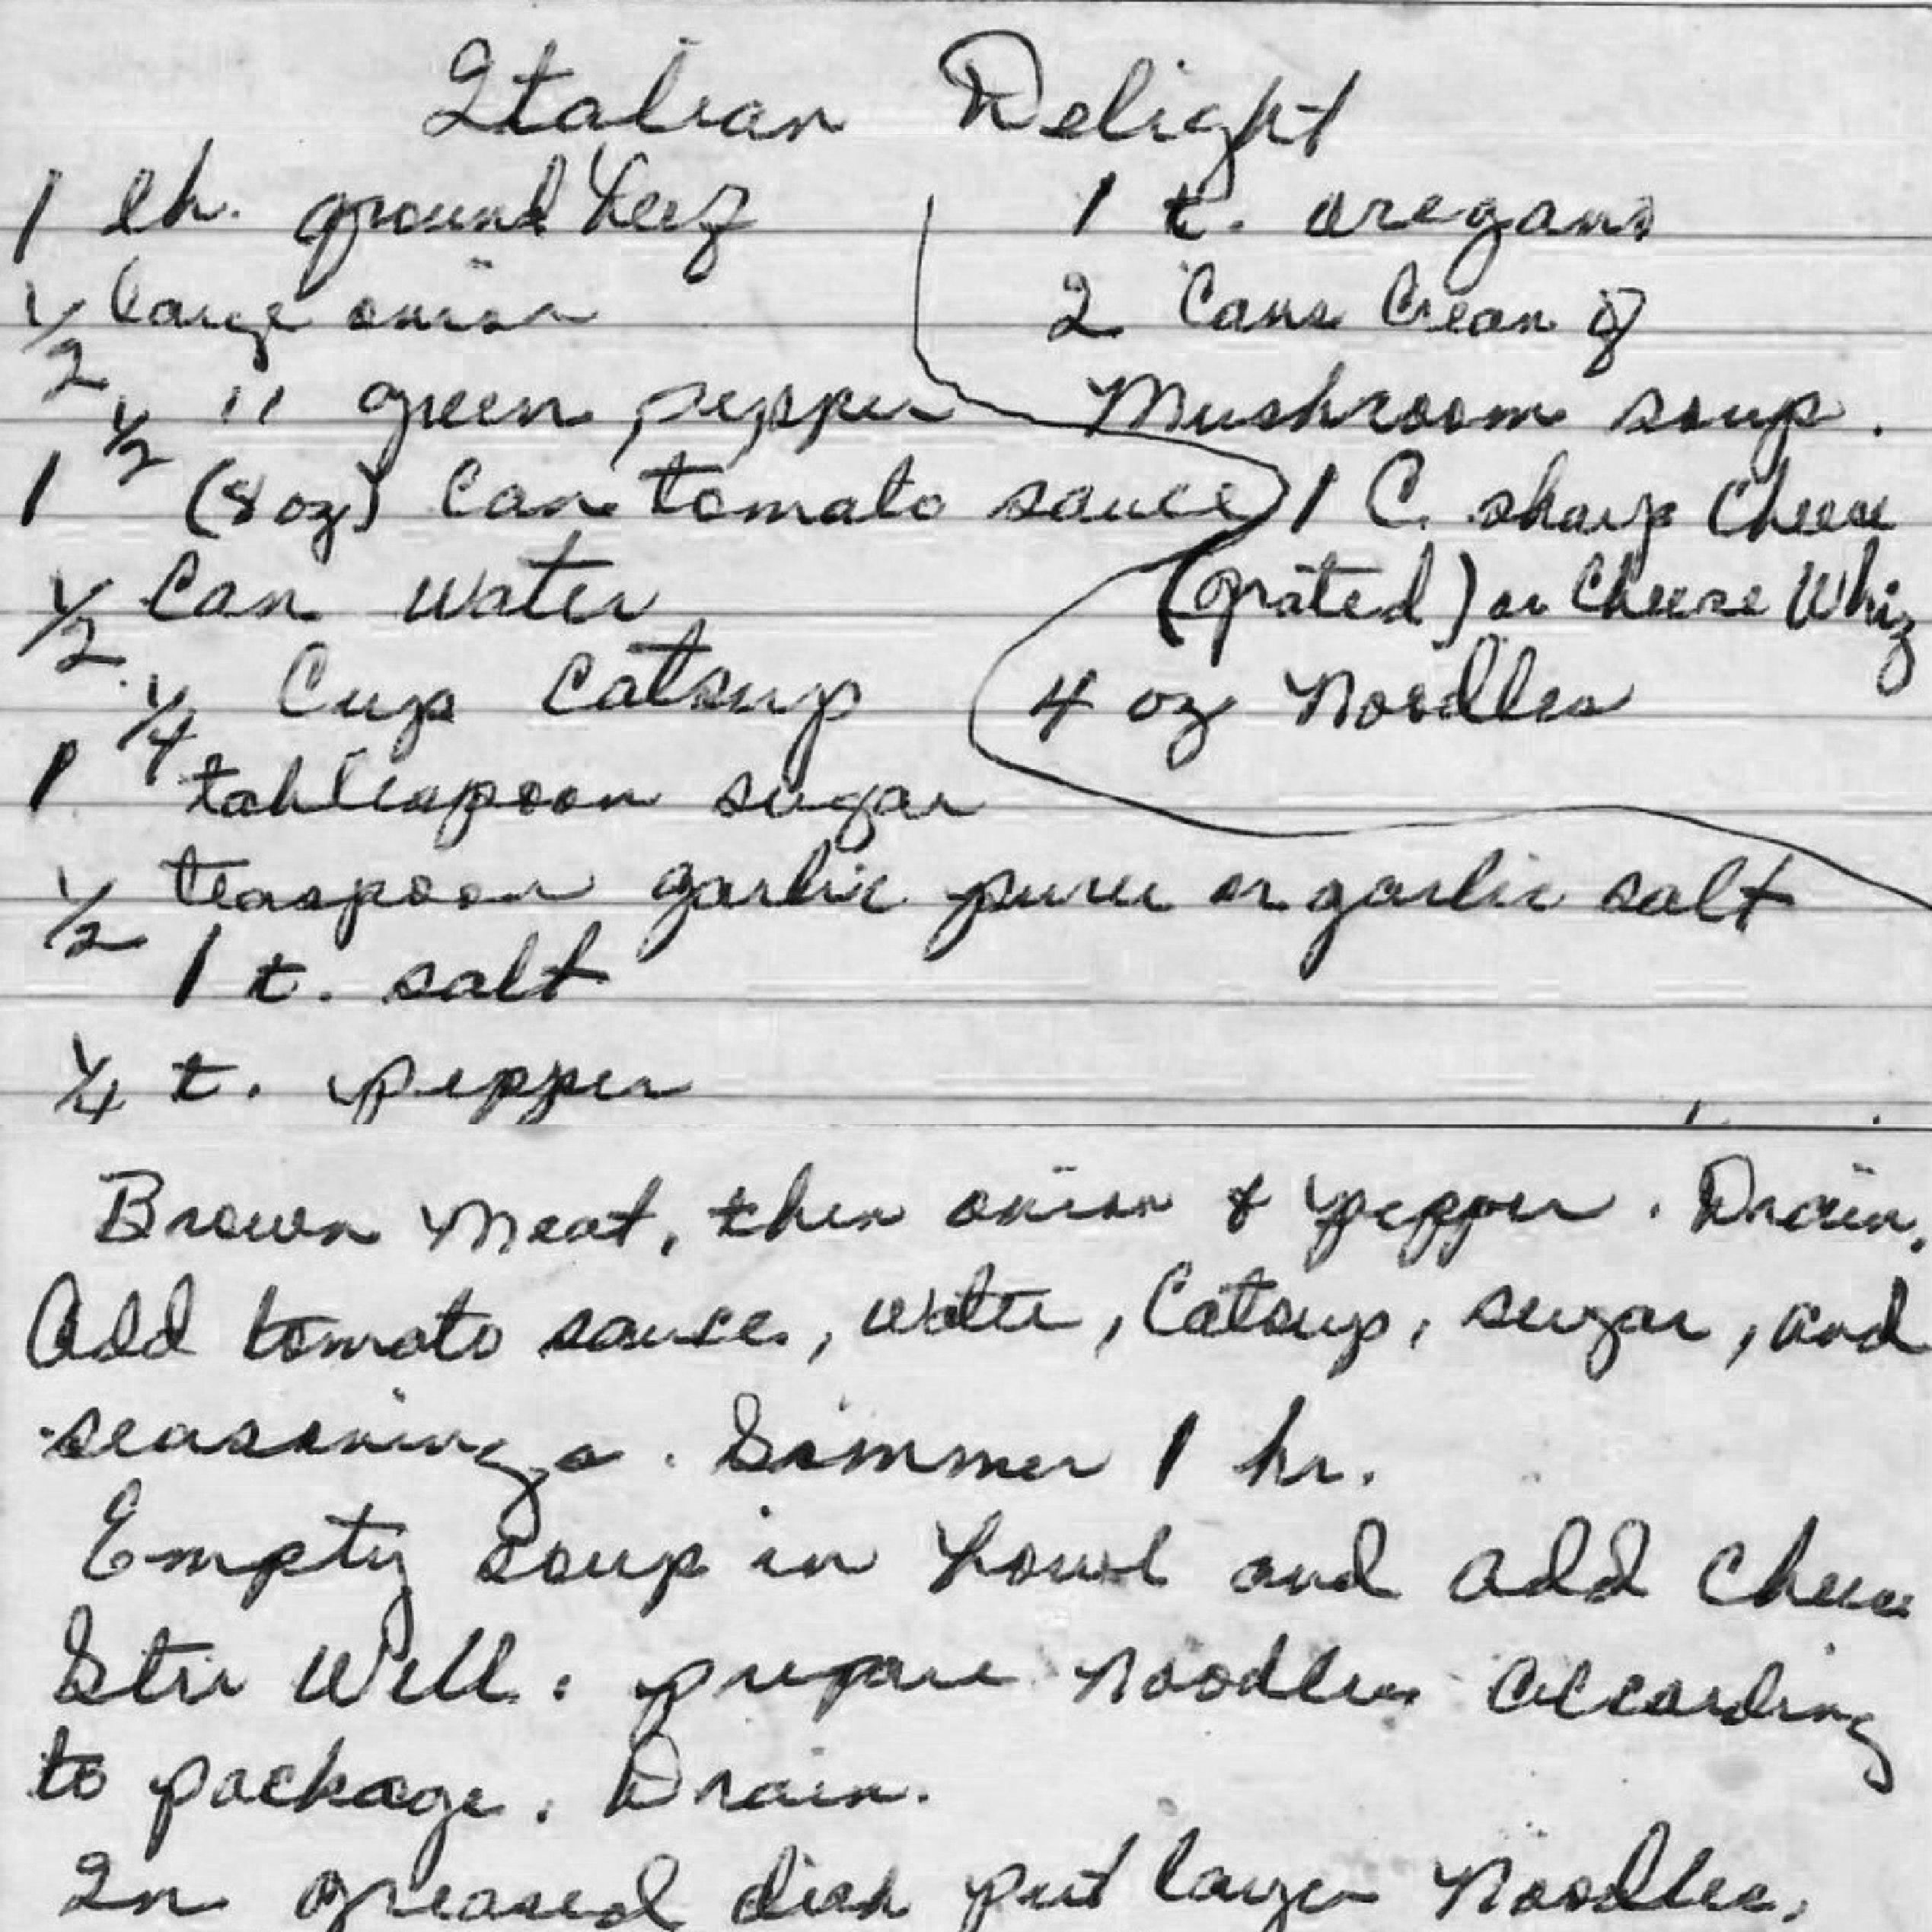 Italian Delight
1 lb. ground beef
1/2 large onion
1/2 " green pepper
1 (8 oz) can tomato sauce
1/2 Can water
1/4 Cup Catsup
1 tablespoon sugar
1/2 teaspoon garlic puree or garlic salt
1 t. salt
1/4 t. pepper
1 t. oregano
2 Cans Cream of
Mushroom soup.
1 C. sharp Cheese
(grated) or Cheese Whiz
4 oz Noodles
Brown Meat, then onion & pepper. Drain.
Add tomato sauce, water, Catsup, sugar, and
seasonings. Simmer 1 hr.
Empty soup in bowl and add Cheese
Stir Well. prepare Noodles According
to package. Drain.
In greased dish put layer Noodles,